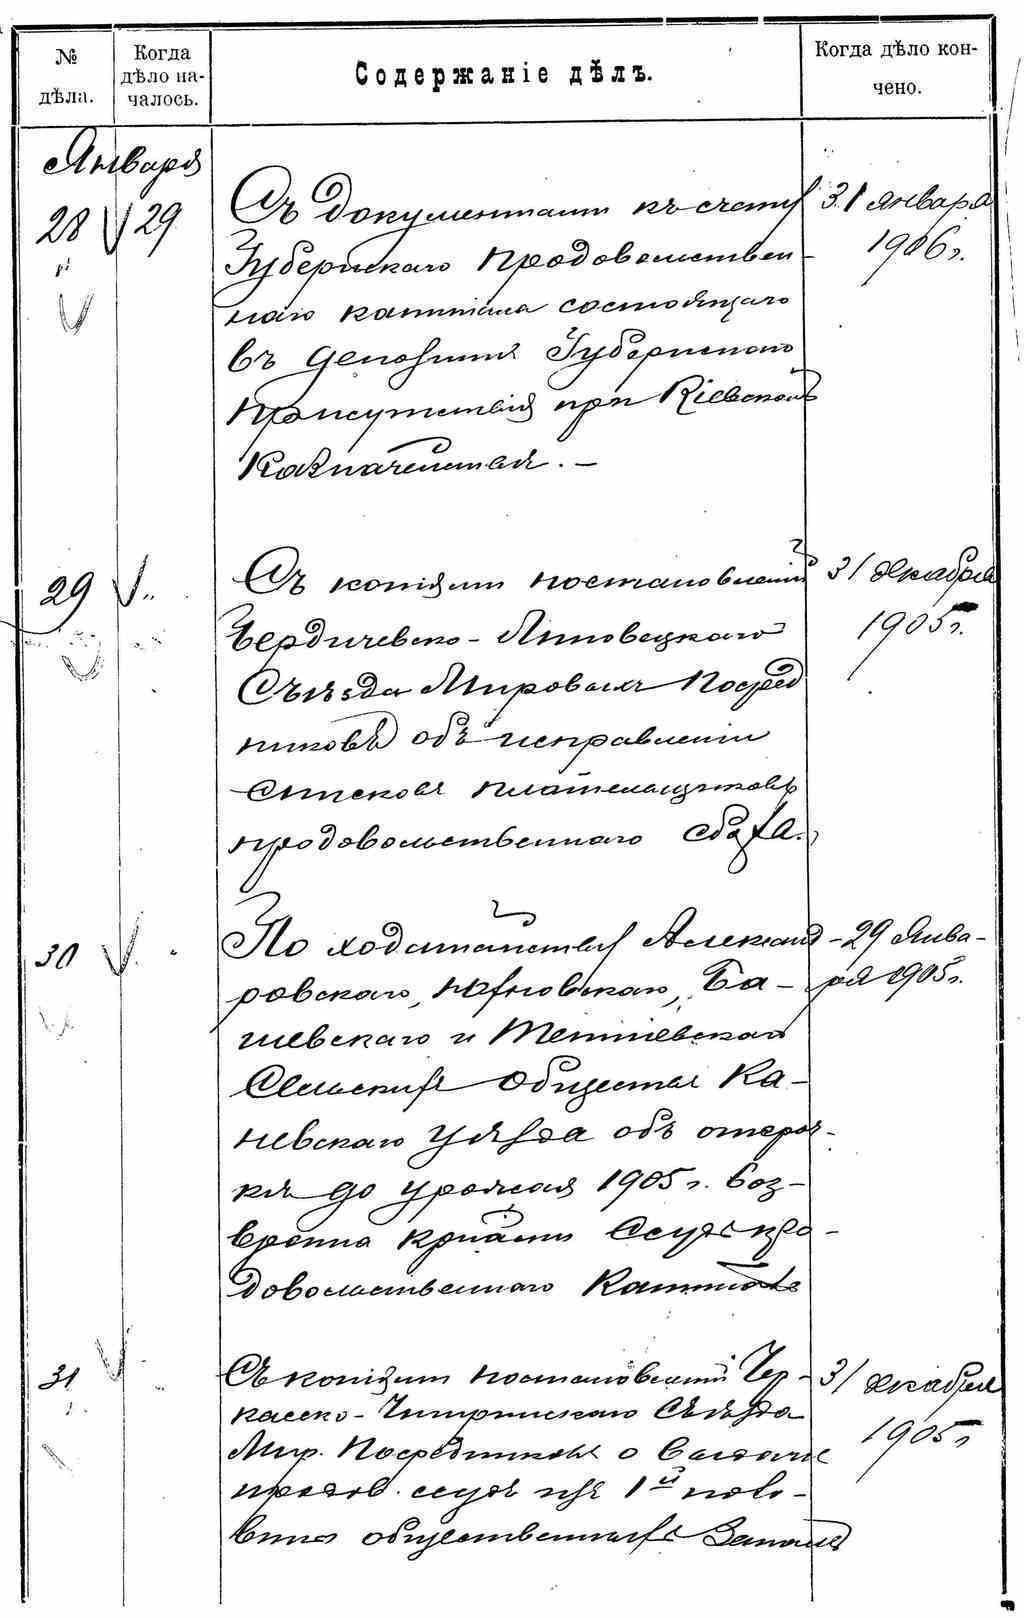 № дѣла.
Когда дѣло началось.
Содержаніе дѣлъ.
Когда дѣло кончено.
Января
28 29
Съ документами къ счету
Губернскаго продовольствен-
наго капитала состоящаго
въ депозитѣ Губернскаго
присутствія при Кіевскомъ
Казначействѣ. –
31 января
1906 г.
29 „
Съ копіями постановленій
Бердичевско-Липовецкаго
Съѣзда Мировыхъ Посред
никовъ объ исправленіи
списковъ плательщиковъ
продовольственнаго сбора.
31 декабря
1905 г.
30 „
По ходатайству Александ
ровскаго, Бо-
шевскаго и
Сельскихъ Обществъ Ка-
невскаго уѣзда объ отсроч-
кѣ до урожая 1905 г. воз-
врата ссуды продо-
довольственнаго Капитала
– 29 Янва-
ря 1905 г.
31 „
Съ копіями постановленій Чер-
касско-Чигиринскаго Съѣзда
Мир. Посредниковъ о выдачѣ
продов. ссудъ изъ 1й поло-
вины общественныхъ
31 декабря
1905 г.